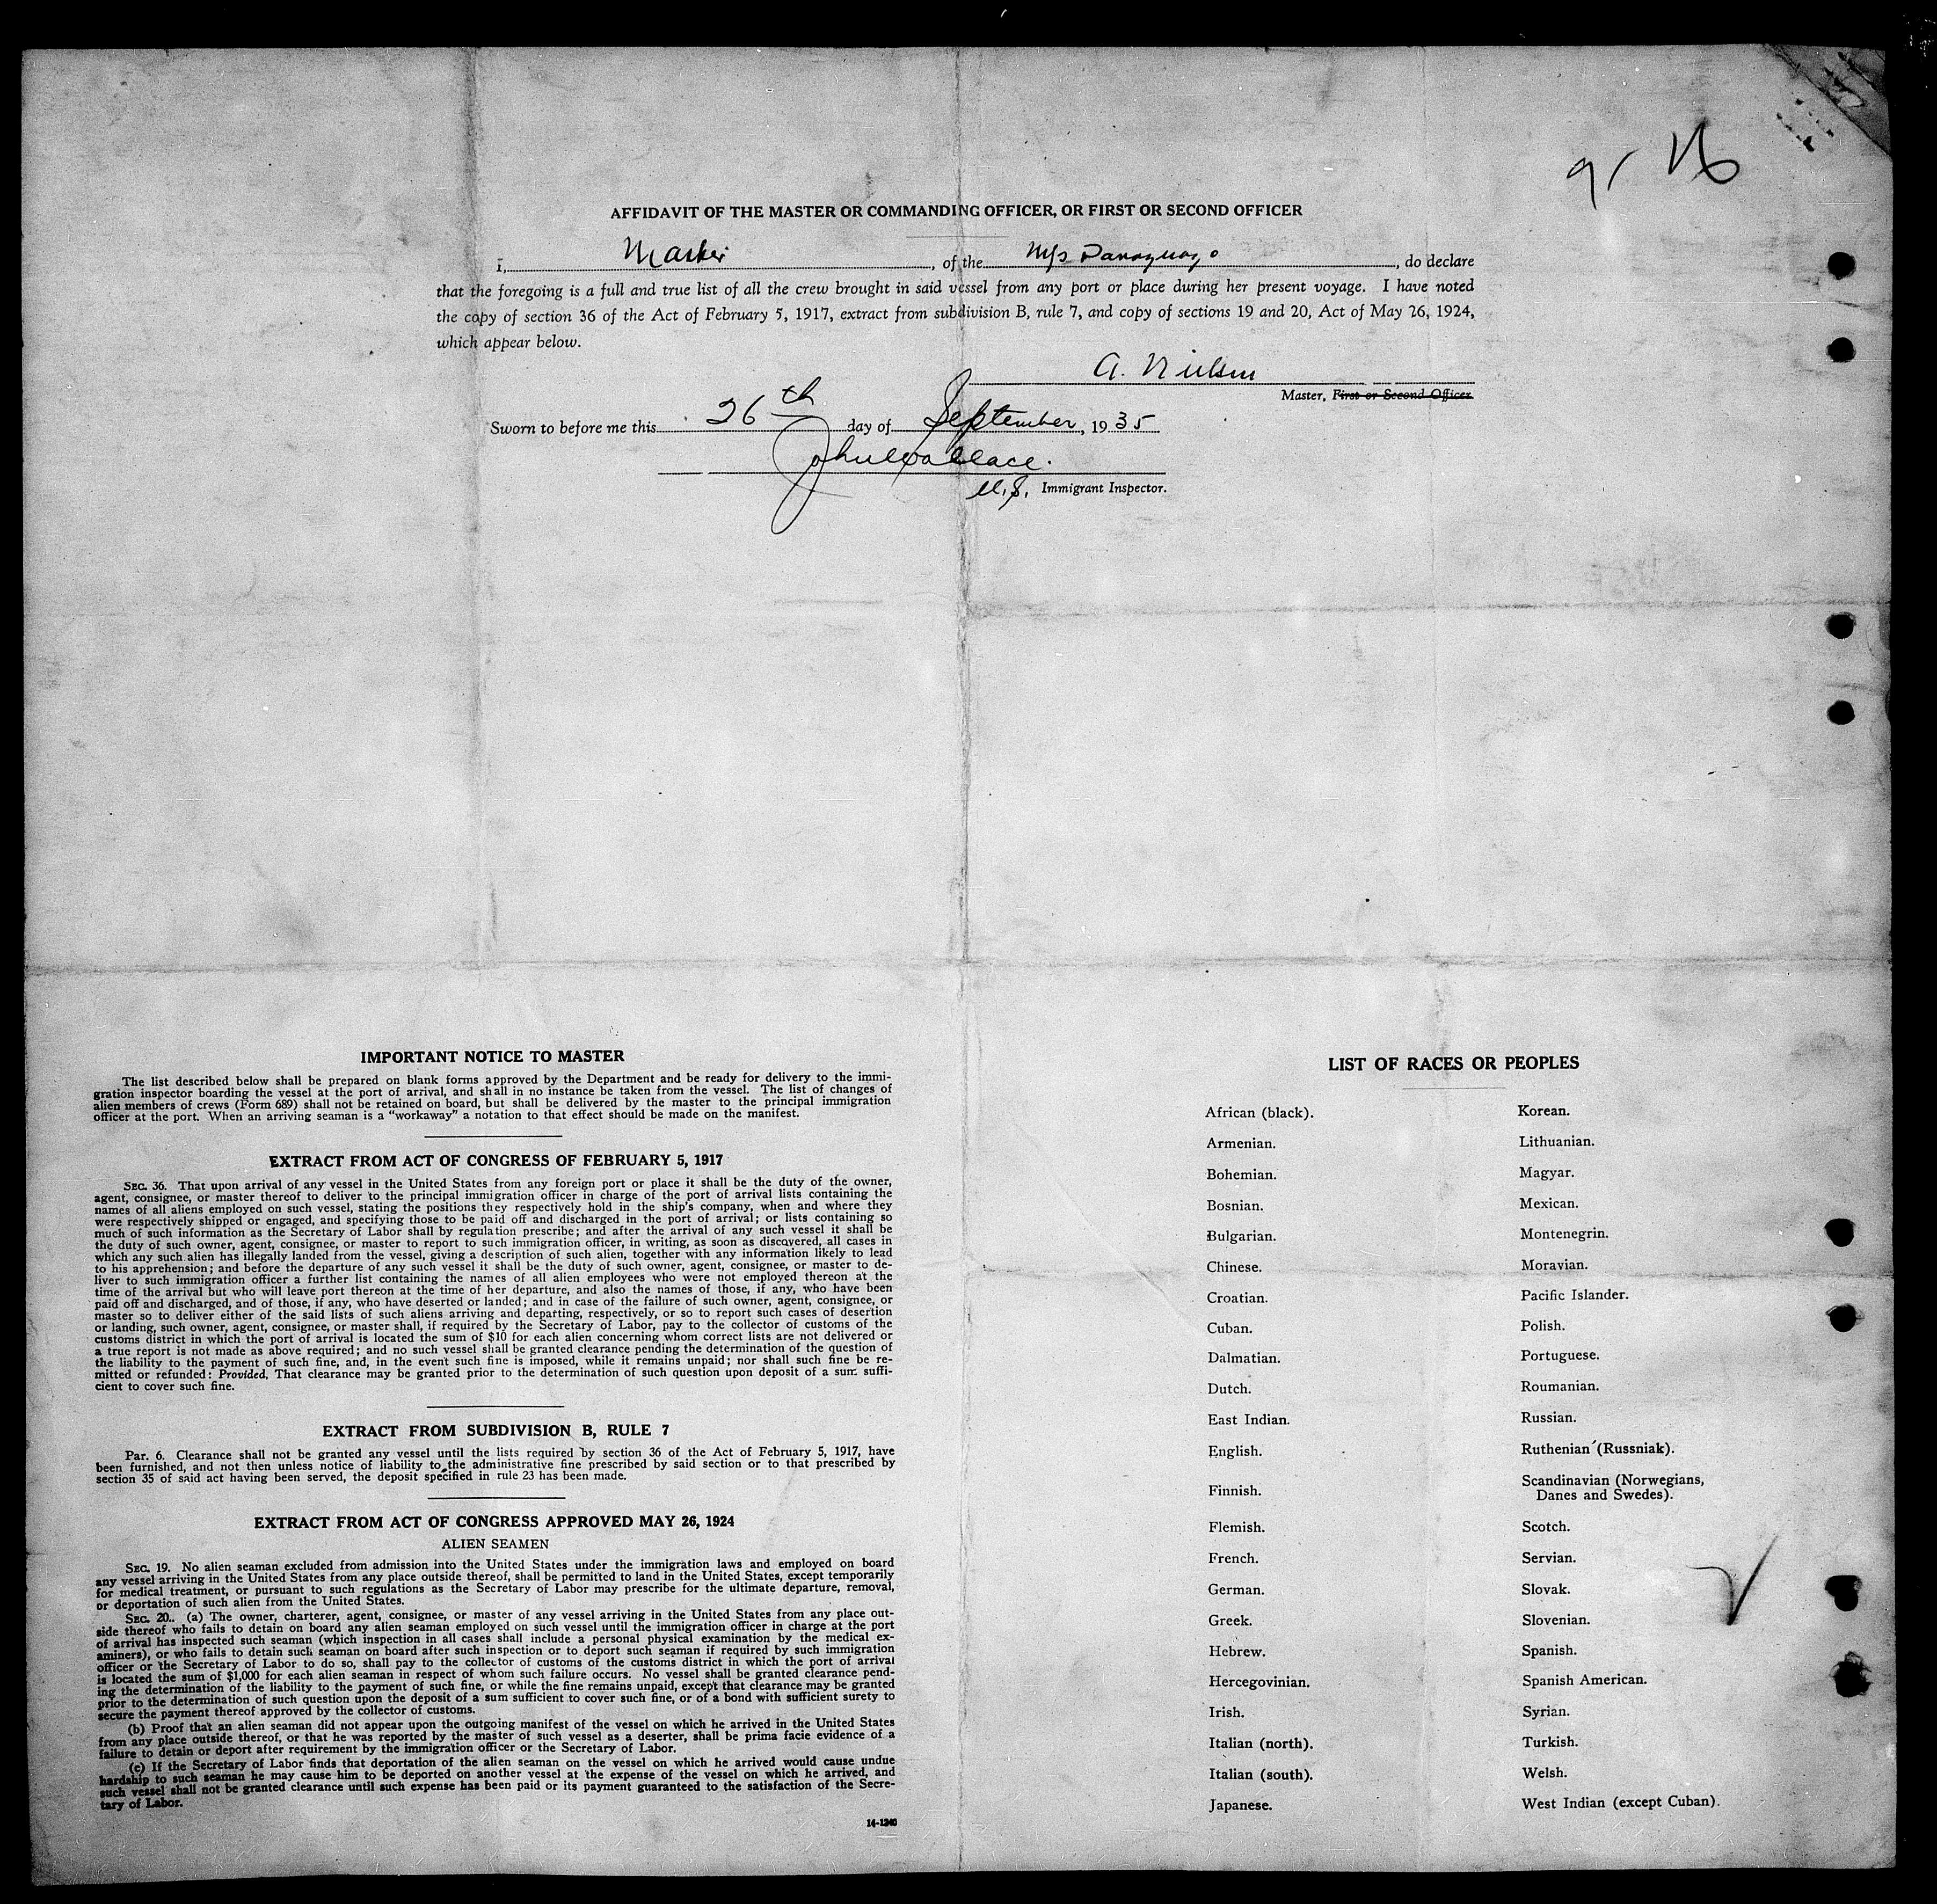 AFFIDAVIT OF THE MASTER OR COMMANDING OFFICER, OR FIRST OR SECOND OFFICER
I, Master, of the M/s, do declare
that the foregoing is a full and true list of all the crew brought in said vessel from any port or place during her present voyage. I have noted
the copy of section 36 of the Act of February 5, 1917, extract from subdivision B, rule 7, and copy of sections 19 and 20, Act of May 26, 1924,
which appear below.
A. Nielsen
Master, First or Second Officer.
Sworn to before me this 26th day of September, 1935
John Wallace.
U.S. Immigrant Inspector.
IMPORTANT NOTICE TO MASTER
The list described below shall be prepared on blank forms approved by the Department and be ready for delivery to the immi-
gration inspector boarding the vessel at the port of arrival, and shall in no instance be taken from the vessel. The list of changes of
alien members of crews (Form 689) shall not be retained on board, but shall be delivered by the master to the principal immigration
officer at the port. When an arriving seaman is a "workaway" a notation to that effect should be made on the manifest.
EXTRACT FROM ACT OF CONGRESS OF FEBRUARY 5, 1917
SEC. 36. That upon arrival of any vessel in the United States from any foreign port or place it shall be the duty of the owner,
agent, consignee, or master thereof to deliver to the principal immigration officer in charge of the port of arrival lists containing the
names of all aliens employed on such vessel, stating the positions they respectively hold in the ship's company, when and where they
were respectively shipped or engaged, and specifying those to be paid off and discharged in the port of arrival; or lists containing so
much of such information as the Secretary of Labor shall by regulation prescribe; and after the arrival of any such vessel it shall be
the duty of such owner, agent, consignee, or master to report to such immigration officer, in writing, as soon as discovered, all cases in
which any such alien has illegally landed from the vessel, giving a description of such alien, together with any information likely to lead
to his apprehension; and before the departure of any such vessel it shall be the duty of such owner, agent, consignee, or master to de-
liver to such immigration officer a further list containing the names of all alien employees who were not employed thereon at the
time of the arrival but who will leave port thereon at the time of her departure, and also the names of those, if any, who have been
paid off and discharged, and of those, if any, who have deserted or landed; and in case of the failure of such owner, agent, consignee, or
master so to deliver either of the said lists of such aliens arriving and departing, respectively, or so to report such cases of desertion
or landing, such owner, agent, consignee, or master shall, if required by the Secretary of Labor, pay to the collector of customs of the
customs district in which the port of arrival is located the sum of $10 for each alien concerning whom correct lists are not delivered or
a true report is not made as above required; and no such vessel shall be granted clearance pending the determination of the question of
the liability to the payment of such fine, and, in the event such fine is imposed, while it remains unpaid; nor shall such fine be re-
mitted or refunded: Provided, That clearance may be granted prior to the determination of such question upon deposit of a sum suffi-
cient to cover such fine.
EXTRACT FROM SUBDIVISION B, RULE 7
Par. 6. Clearance shall not be granted any vessel until the lists required by section 36 of the Act of February 5, 1917, have
been furnished, and not then unless notice of liability to the administrative fine prescribed by said section or to that prescribed by
section 35 of said act having been served, the deposit specified in rule 23 has been made.
EXTRACT FROM ACT OF CONGRESS APPROVED MAY 26, 1924
ALIEN SEAMEN
SEC. 19. No alien seaman excluded from admission into the United States under the immigration laws and employed on board
any vessel arriving in the United States from any place outside thereof, shall be permitted to land in the United States, except temporarily
for medical treatment, or pursuant to such regulations as the Secretary of Labor may prescribe for the ultimate departure, removal,
or deportation of such alien from the United States.
SEC. 20. (a) The owner, charterer, agent, consignee, or master of any vessel arriving in the United States from any place out-
side thereof who fails to detain on board any alien seaman employed on such vessel until the immigration officer in charge at the port
of arrival has inspected such seaman (which inspection in all cases shall include a personal physical examination by the medical ex-
aminers), or who fails to detain such seaman on board after such inspection or to deport such seaman if required by such immigration
officer or the Secretary of Labor to do so, shall pay to the collector of customs of the customs district in which the port of arrival
is located the sum of $1,000 for each alien seaman in respect of whom such failure occurs. No vessel shall be granted clearance pend-
ing the determination of the liability to the payment of such fine, or while the fine remains unpaid, except that clearance may be granted
prior to the determination of such question upon the deposit of a sum sufficient to cover such fine, or of a bond with sufficient surety to
secure the payment thereof approved by the collector of customs.
(b) Proof that an alien seaman did not appear upon the outgoing manifest of the vessel on which he arrived in the United States
from any place outside thereof, or that he was reported by the master of such vessel as a deserter, shall be prima facie evidence of a
failure to detain or deport after requirement by the immigration officer or the Secretary of Labor.
(c) If the Secretary of Labor finds that deportation of the alien seaman on the vessel on which he arrived would cause undue
hardship to such seaman he may cause him to be deported on another vessel at the expense of the vessel on which he arrived, and
such vessel shall not be granted clearance until such expense has been paid or its payment guaranteed to the satisfaction of the Secre-
tary of Labor.
14-1240
LIST OF RACES OR PEOPLES
African (black).
Armenian.
Bohemian.
Bosnian.
Bulgarian.
Chinese.
Croatian.
Cuban.
Dalmatian.
Dutch.
East Indian.
English.
Finnish.
Flemish.
French.
German.
Greek.
Hebrew.
Hercegovinian.
Irish.
Italian (north).
Italian (south).
Japanese.
Korean.
Lithuanian.
Magyar.
Mexican.
Montenegrin.
Moravian.
Pacific Islander.
Polish.
Portuguese.
Roumanian.
Russian.
Ruthenian (Russniak).
Scandinavian (Norwegians,
Danes and Swedes).
Scotch.
Servian.
Slovak.
Slovenian.
Spanish.
Spanish American.
Syrian.
Turkish.
Welsh.
West Indian (except Cuban).